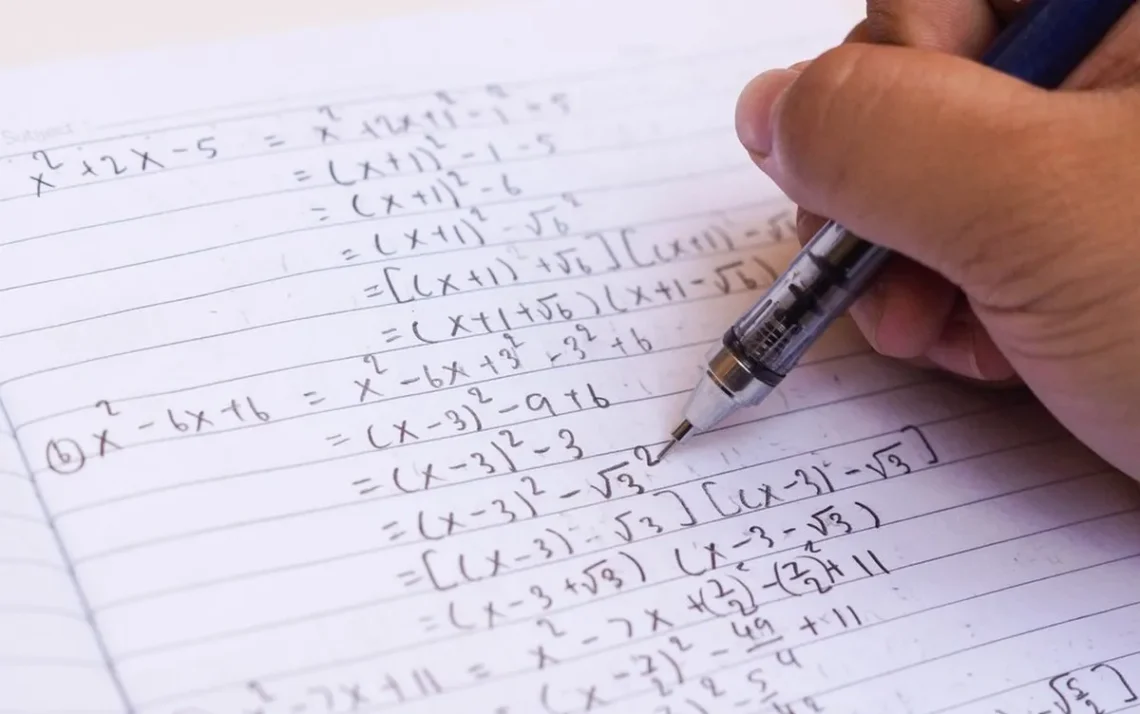 Subject
x² + 2x - 5 = x² + 2x + 1² - 1² - 5
= (x+1)² - 1 - 5
= (x+1)² - 6
= (x+1)² - √6²
= [(x+1) + √6] [(x+1) - √6
= (x+1+√6)(x+1-√6)
(b) x² - 6x + 6 = x² - 6x + 3² - 3² + 6
= (x-3)² - 9 + 6
= (x-3)² - 3
= (x-3)² - √3²
= [(x-3) - √3] [(x-3) - √3]
= (x-3+√3) (x-3-√3)
x² - 7x + 11 = x² - 7x + (7/2)² - (7/2)² + 11
= (x - 7/2)² - 49/4 + 11
)² - 5/4